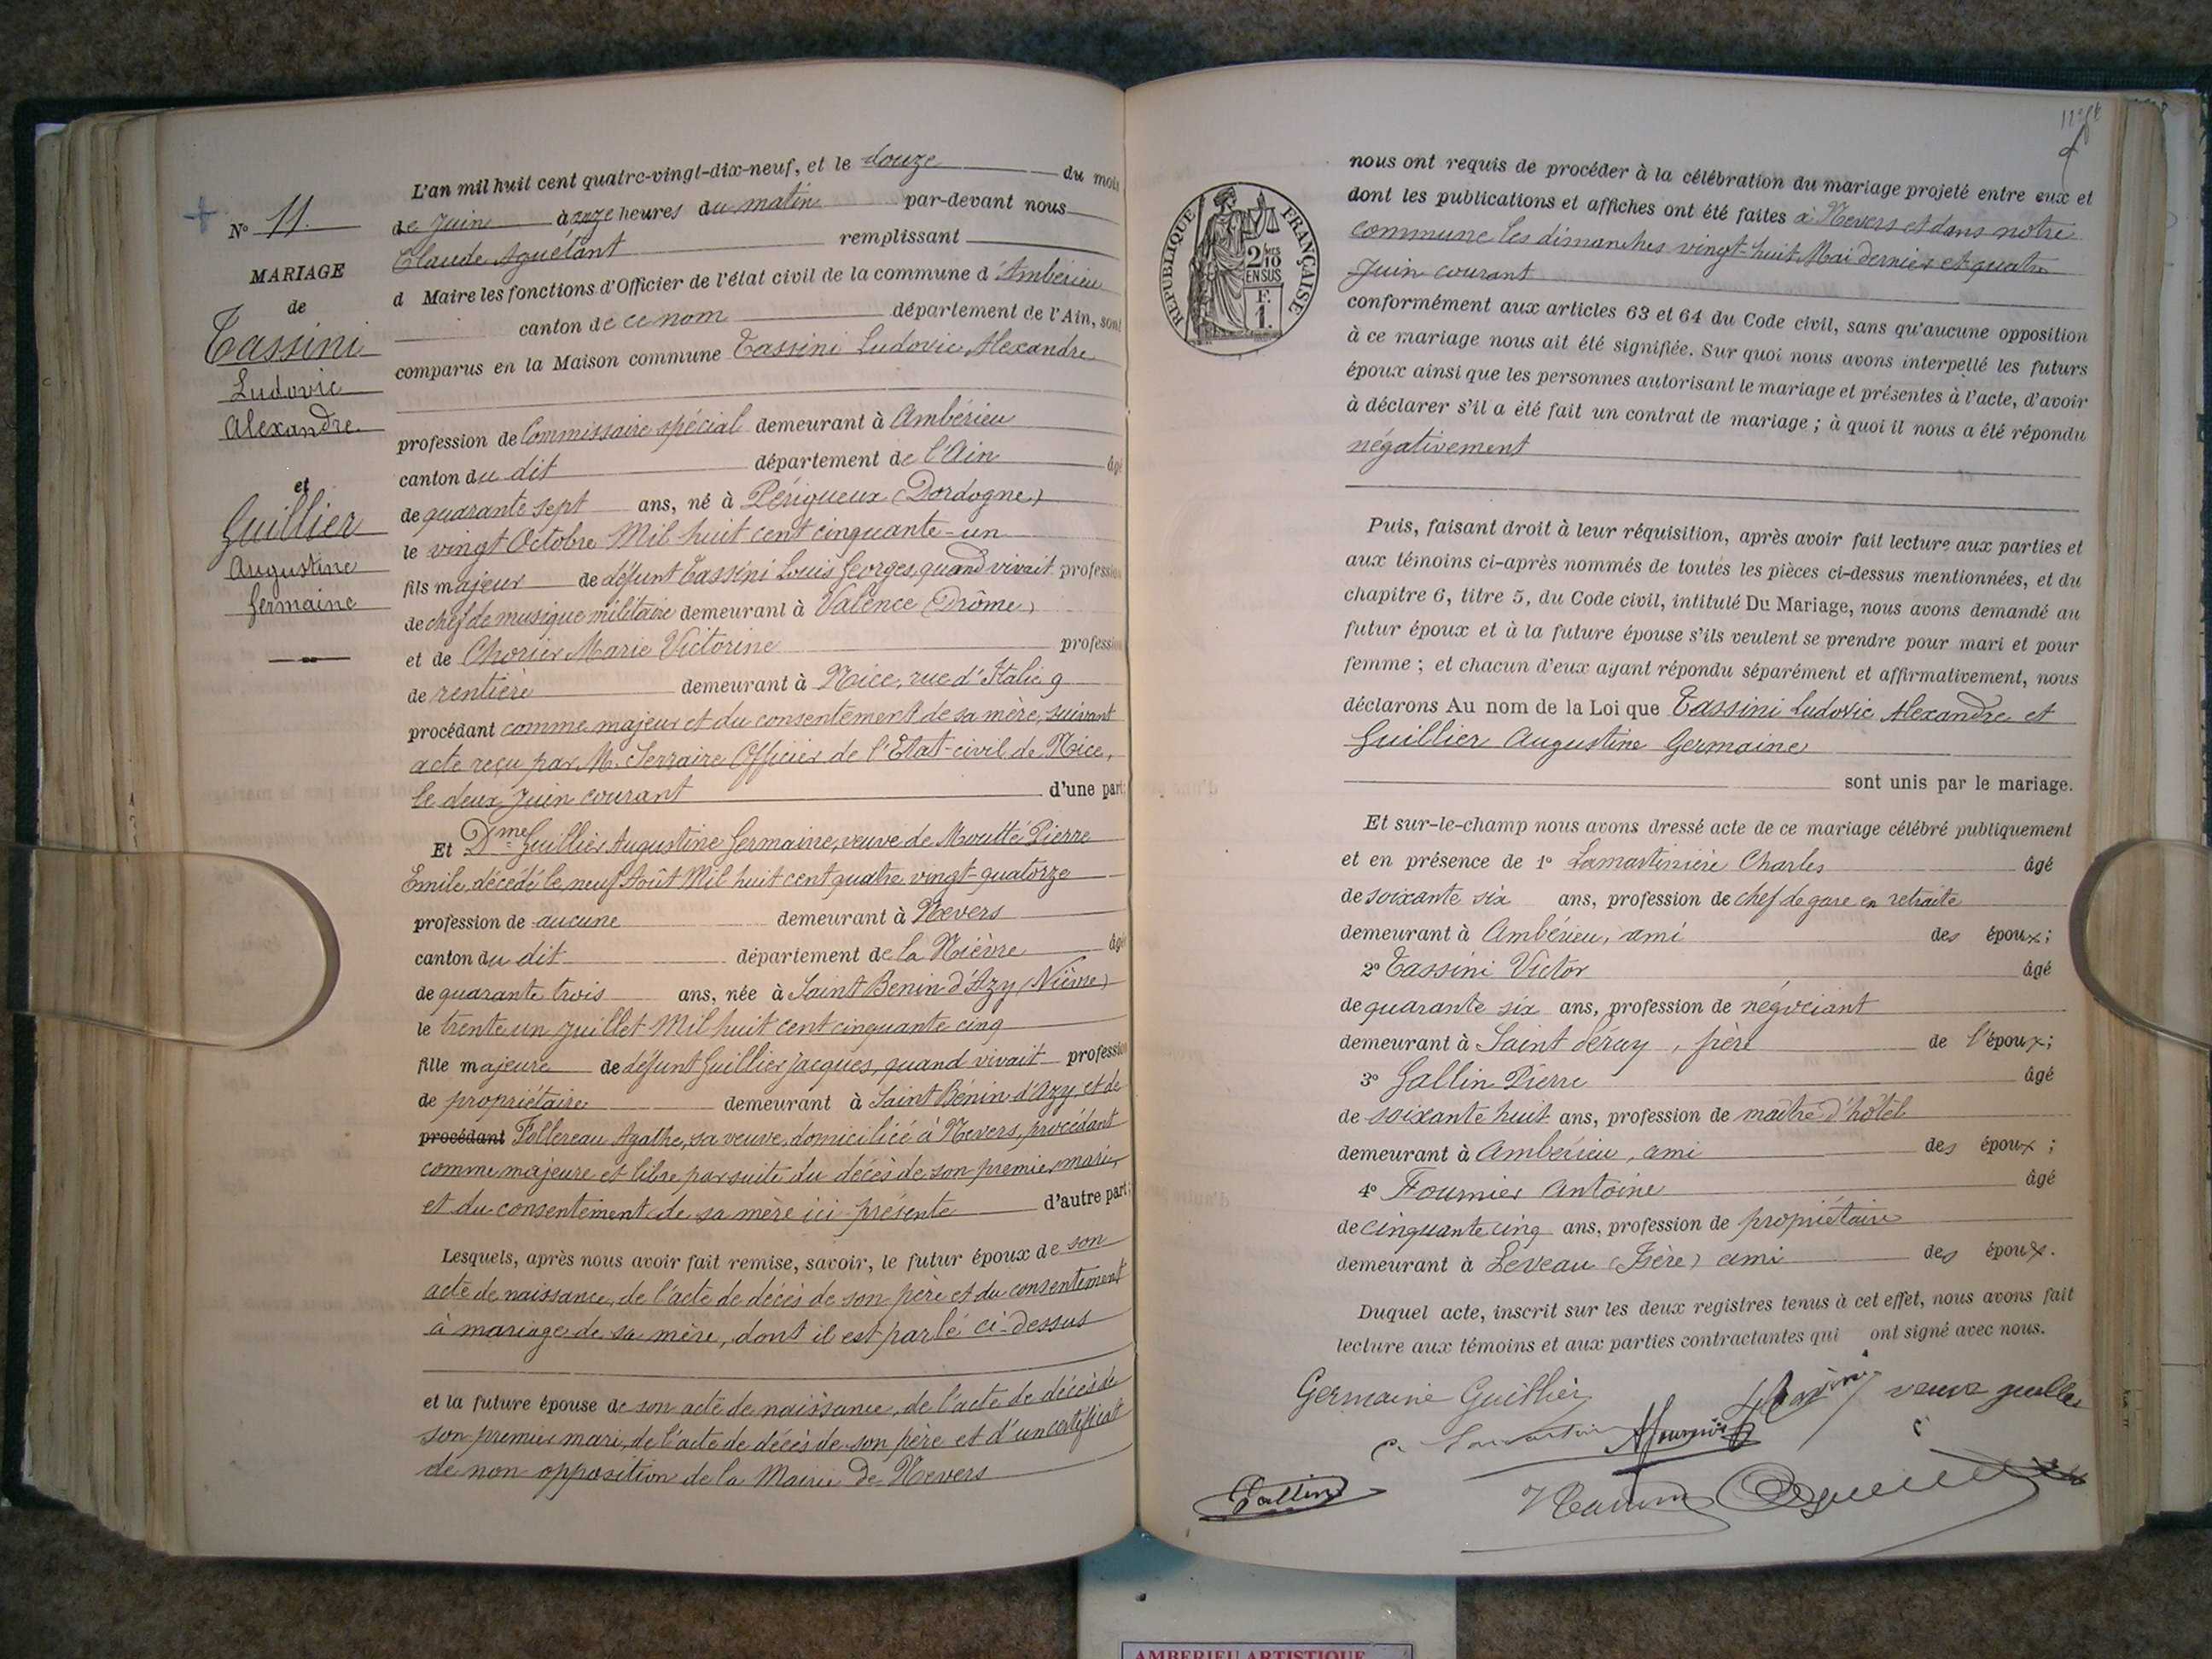 N° 11.
MARIAGE
de
Tassini
Ludovic
Alexandre
et
Guillier
Augustine
Germaine
L'an mil huit cent quatre-vingt-dix-neuf, et le douze du mois
de Juin à onze heures du matin par-devant nous
Claude Aguétant remplissant
d Maire les fonctions d'Officier de l'état civil de la commune d'Ambérieu
canton de ce nom département de l'Ain, sont
comparus en la Maison commune Tassini Ludovic Alexandre
profession de Commissaire spécial demeurant à Ambérieu
canton du dit département de l'Ain âgé
de quarante sept ans, né à Périgueux (Dordogne)
le vingt Octobre Mil huit cent cinquante-un
fils majeur de défunt Tassini Louis Georges, quand vivait profession
de chef de musique militaire demeurant à Valence (Drôme)
et de Chorier Marie Victorine profession
de rentière demeurant à Nice, rue d'Italie 9
procédant comme majeur et du consentement de sa mère, suivant
acte reçu par M. Serraire Officier de l'Etat-civil de Nice,
le deux Juin courant d'une part;
Et Dme Guillier Augustine Germaine, veuve de Moutté Pierre
Emile, décédé le neuf Août Mil huit cent quatre vingt-quatorze
profession de aucune demeurant à Nevers
canton du dit département de la Nièvre âgé
de quarante trois ans, née à Saint Benin d'Azy (Nièvre)
le trente un Juillet Mil huit cent cinquante cinq
fille majeure de défunt Guillier Jacques, quand vivait profession
de propriétaire demeurant à Saint Bénin d'Azy, et de
procédant Follereau Agathe, sa veuve, domiciliée à Nevers, procédant
comme majeure et libre par suite du décès de son premier mari,
et du consentement de sa mère ici-présente d'autre part;
Lesquels, après nous avoir fait remise, savoir, le futur époux de son
acte de naissance, de l'acte de décès de son père et du consentement
à mariage de sa mère, dont il est parlé ci-dessus
et la future épouse de son acte de naissance, de l'acte de décès de
son premier mari, de l'acte de décès de son père et d'un certificat
de non opposition de la Mairie de Nevers
RÉPUBLIQUE FRANÇAISE
2/10
EN SUS
F.
1.
nous ont requis de procéder à la célébration du mariage projeté entre eux et
dont les publications et affiches ont été faites à Nevers et dans notre
commune les dimanches vingt-huit Mai dernier et quatre
Juin courant
conformément aux articles 63 et 64 du Code civil, sans qu'aucune opposition
à ce mariage nous ait été signifiée. Sur quoi nous avons interpellé les futurs
époux ainsi que les personnes autorisant le mariage et présentes à l'acte, d'avoir
à déclarer s'il a été fait un contrat de mariage ; à quoi il nous a été répondu
négativement
Puis, faisant droit à leur réquisition, après avoir fait lecture aux parties et
aux témoins ci-après nommés de toutes les pièces ci-dessus mentionnées, et du
chapitre 6, titre 5, du Code civil, intitulé Du Mariage, nous avons demandé au
futur époux et à la future épouse s'ils veulent se prendre pour mari et pour
femme ; et chacun d'eux ayant répondu séparément et affirmativement, nous
déclarons Au nom de la Loi que Tassini Ludovic Alexandre et
Guillier Augustine Germaine
sont unis par le mariage.
Et sur-le-champ nous avons dressé acte de ce mariage célébré publiquement
et en présence de 1° Lamartinière Charles âgé
de soixante six ans, profession de chef de gare en retraite
demeurant à Ambérieu, ami des époux;
2° Tassini Victor âgé
de quarante six ans, profession de négociant
demeurant à Saint Péray, frère de l'époux;
3° Gallin Pierre âgé
de soixante huit ans, profession de maître d'hôtel
demeurant à Ambérieu, ami des époux;
4° Fournier Antoine âgé
de cinquante cinq ans, profession de propriétaire
demeurant à Leveau (Isère) ami des époux.
Duquel acte, inscrit sur les deux registres tenus à cet effet, nous avons fait
lecture aux témoins et aux parties contractantes qui ont signé avec nous.
Germaine Guillier veuve
AFournier
Gallin
AMBERIEU ARTISTIQUE